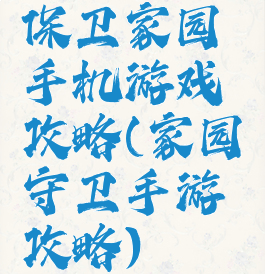 保卫家园
手机游戏
攻略(家园
守卫手游
攻略)